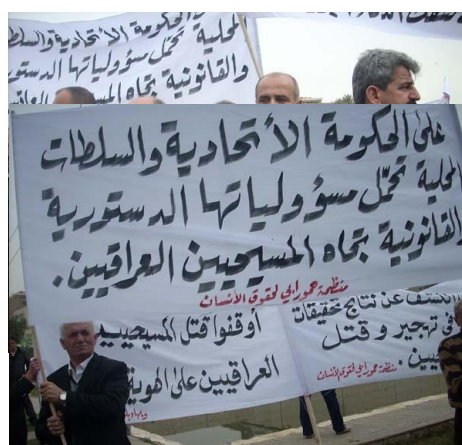 الحكومة الاتحادية والسلطات
المحلية تحمّل مسؤولياتها الدستورية
والقانونية تجاه المسيحيين العراقيين
على الحكومة الأتحادية والسلطات
المحلية تحمّل مسؤولياتها الدستورية
والقانونية تجاه المسيحيين العراقيين.
منظمة حمورابي لحقوق الأنسان
أوقفوا قتل المسيحيين
العراقيين على الهوية
الكشف عن نتائج تحقيقات
في تهجير و قتل
منظمة حمورابي لحقوق الأنسان